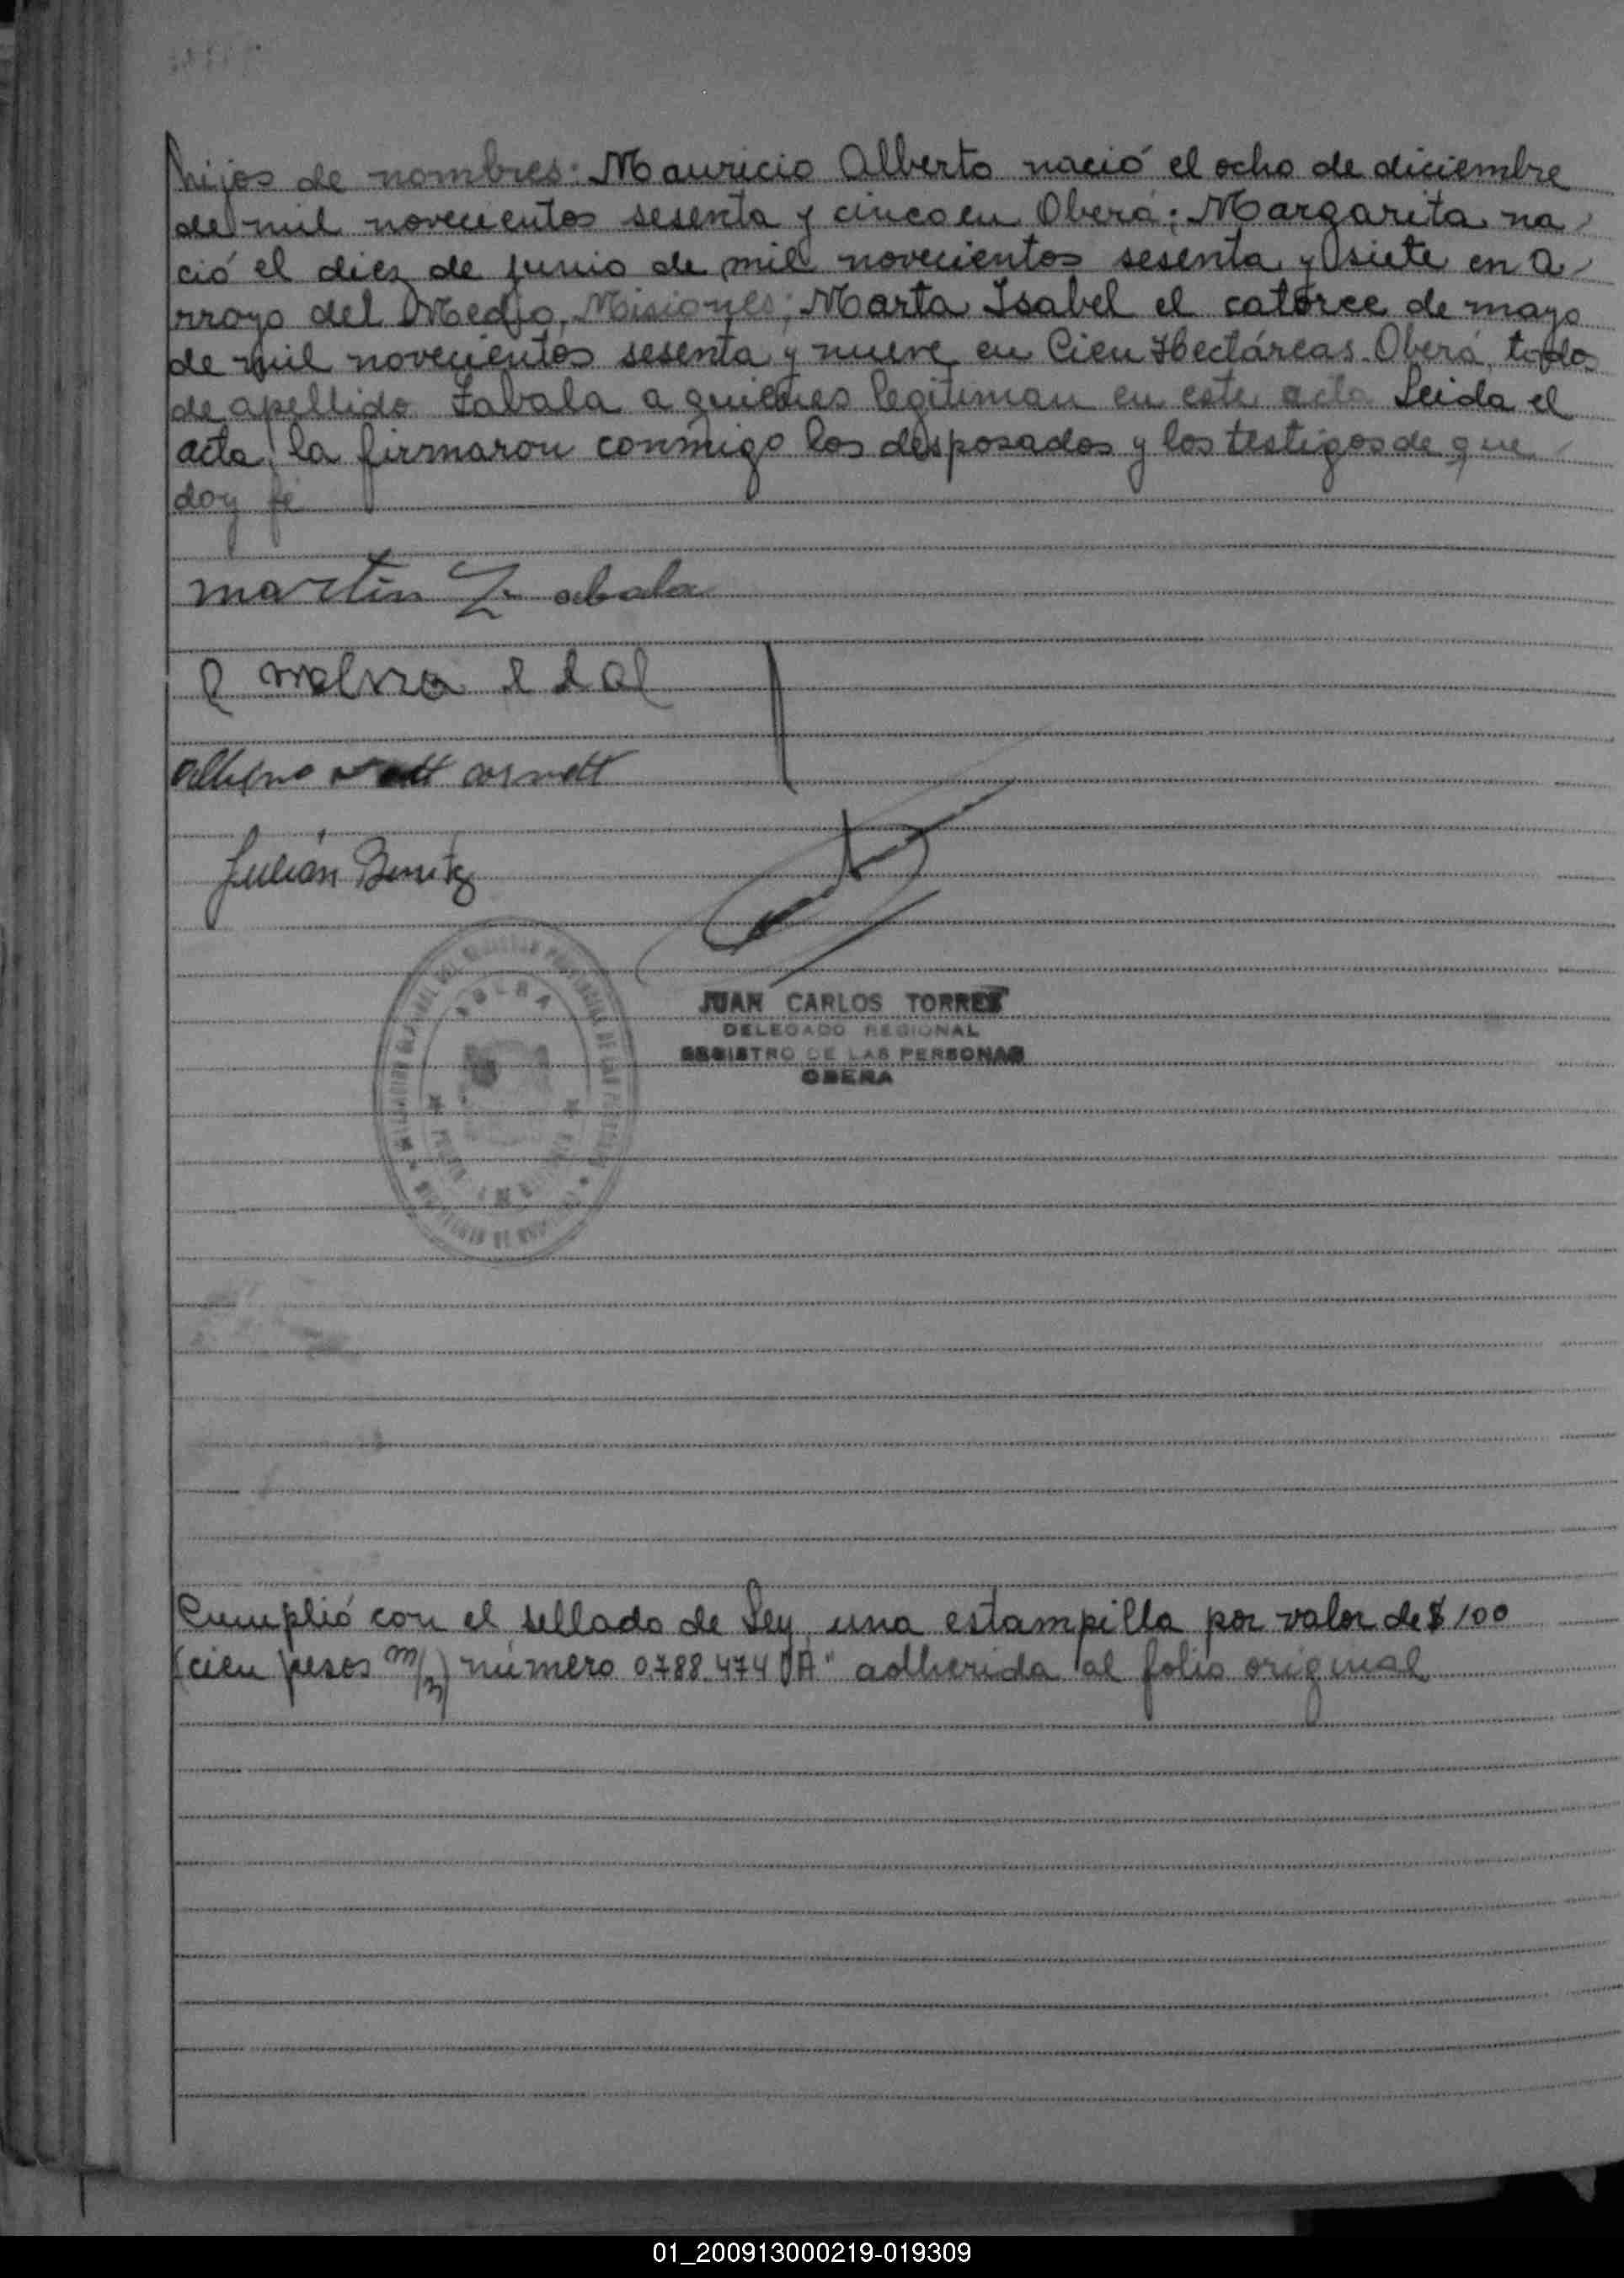 hijos de nombres: Mauricio Alberto nació el ocho de diciembre
de mil novecientos sesenta y cinco en Oberá; Margarita na
ció el diez de junio de mil novecientos sesenta y siete en A
rroyo del Medio, Misiones; Marta Isabel el catorce de mayo
de mil novecientos sesenta y nueve en Cien Hectáreas Oberá, todos
de apellido Zabala a quienes legitiman en este acta Leida el
acta, la firmaron conmigo los desposados y los testigos de que
doy fé
martin Zabala
Julián Benitez
JUAN CARLOS TORRES
DELEGADO REGIONAL
REGISTRO DE LAS PERSONAS
OBERA
Cumplió con el sellado de Ley, una estampilla por valor de $ 100
(cien pesos m/n) número 0788.474 "A" adherida al folio original
01_200913000219-019309